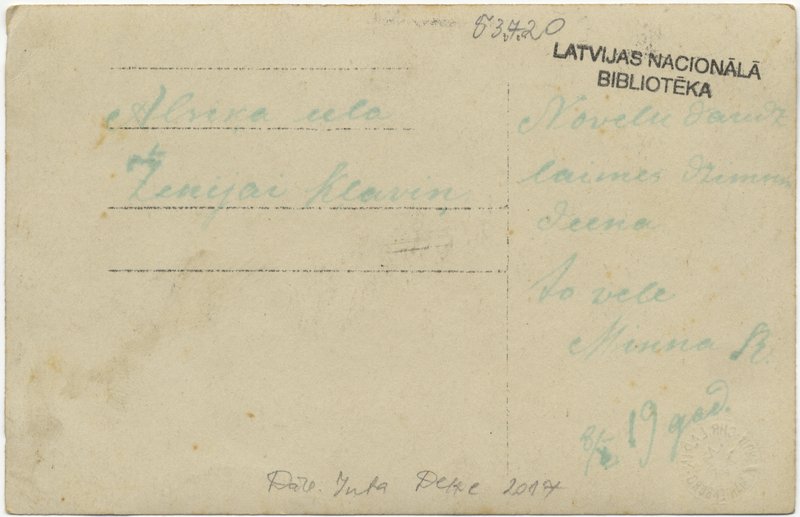 53720
LATVIJAS NACIONĀLĀ
BIBLIOTĒKA
Ženijai Klaviņ
Novelu daudz
laimes dzimum
deena
to vele
Minna R.
19 gad.
Dāv. Inta 2017